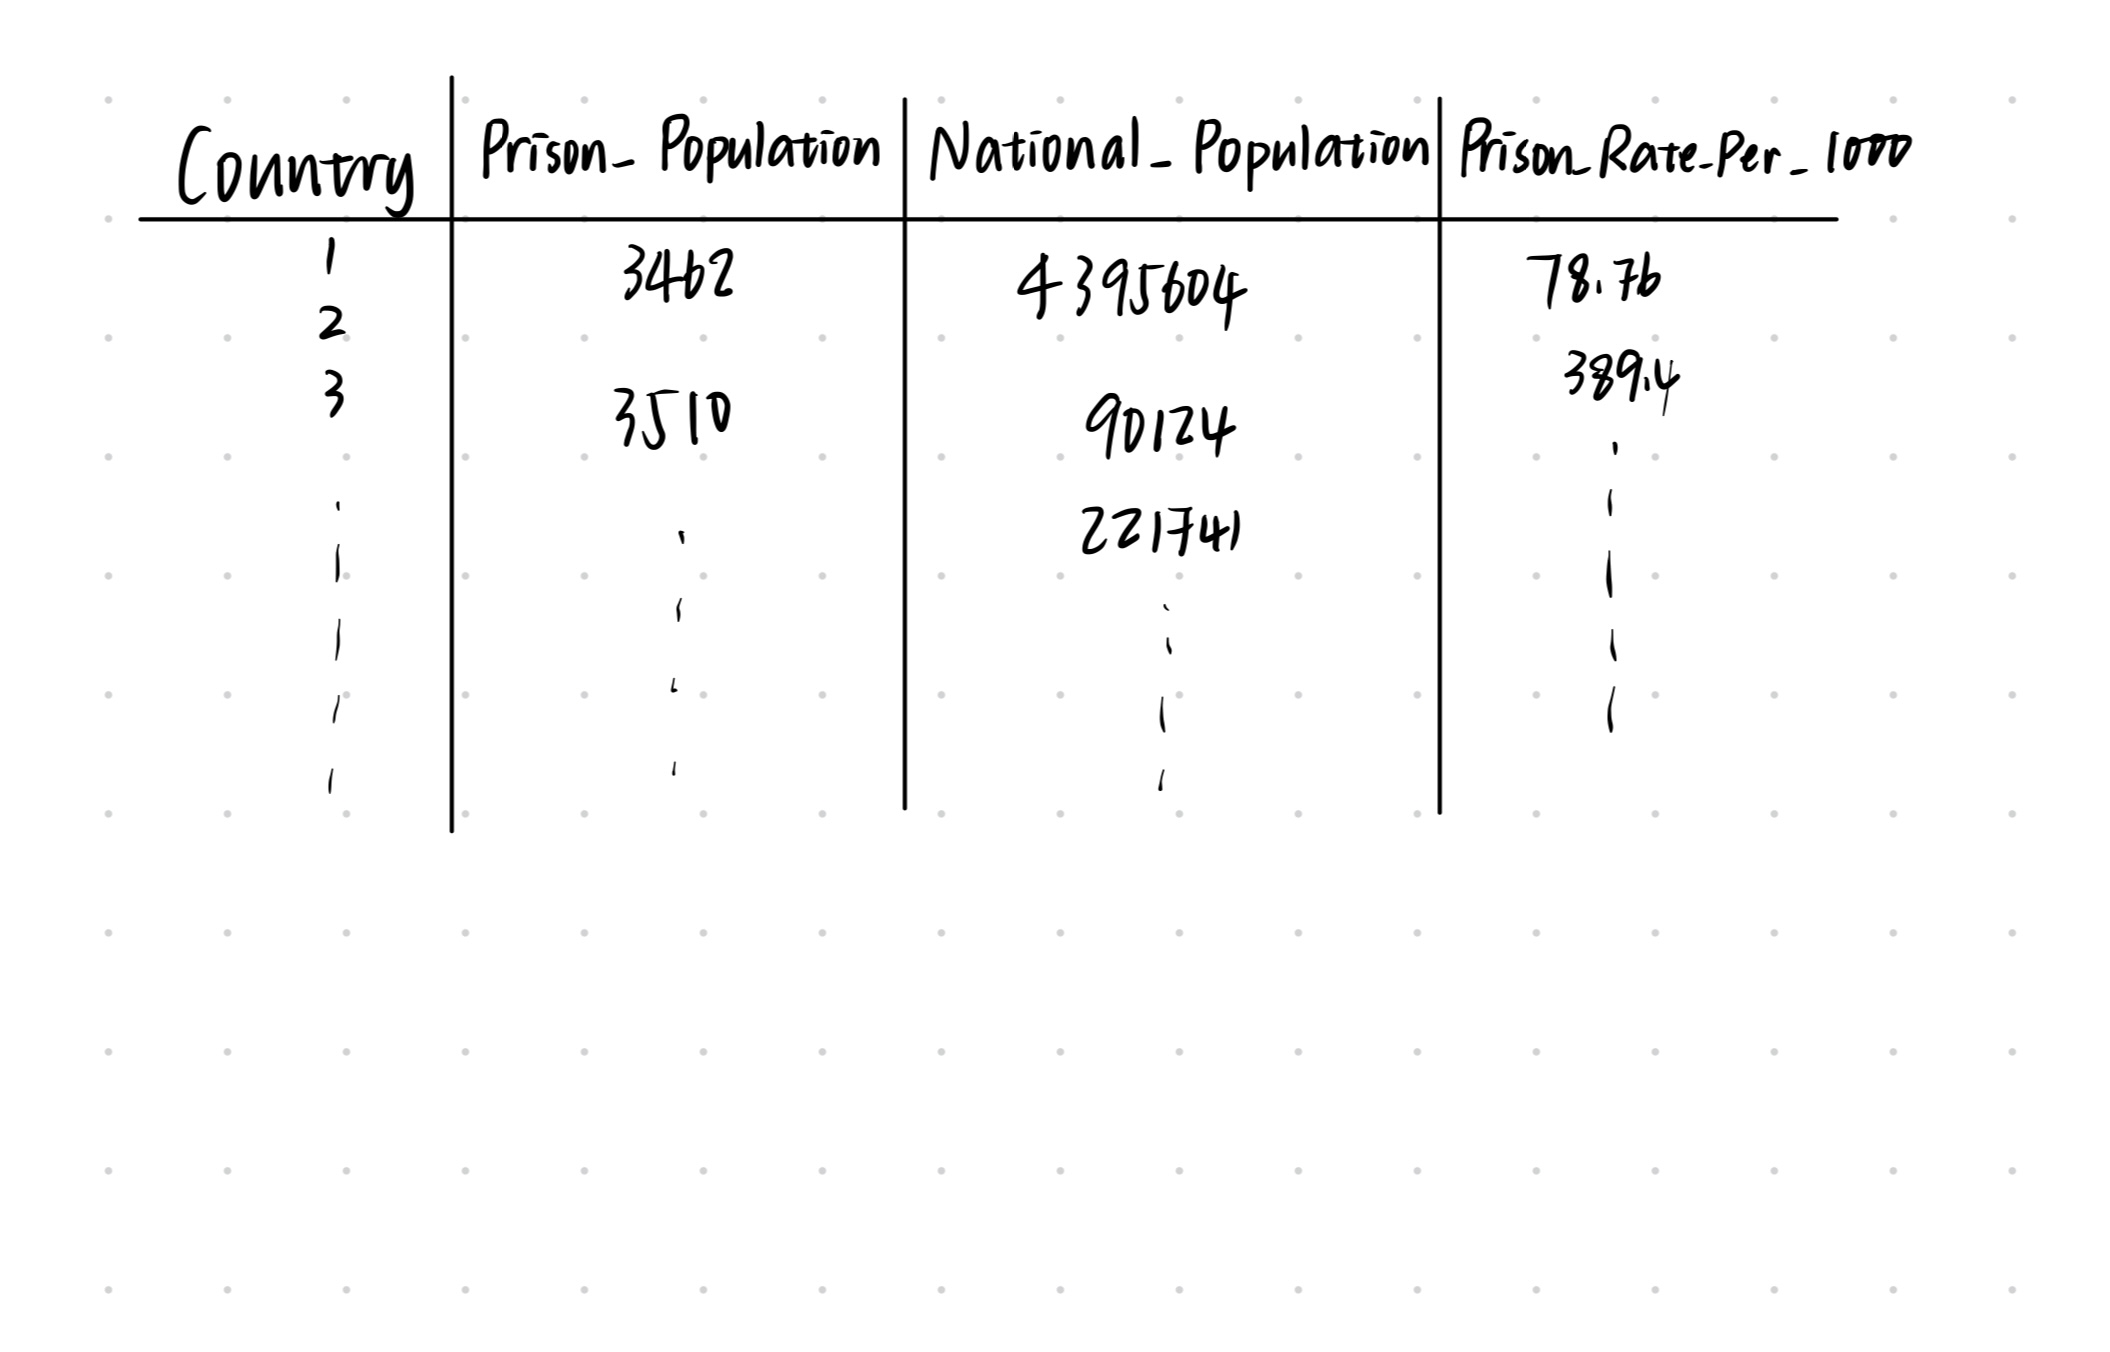 Country Prison_Population National_Population Prison_Rate-Per_1000
1 3462 4395604 78.76
2
3 3510 90124 389.4
221741